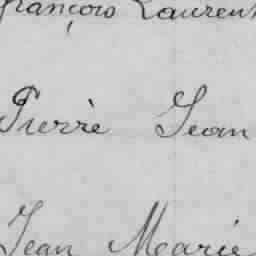 François Laurent
Pierre Jean
Jean Marie